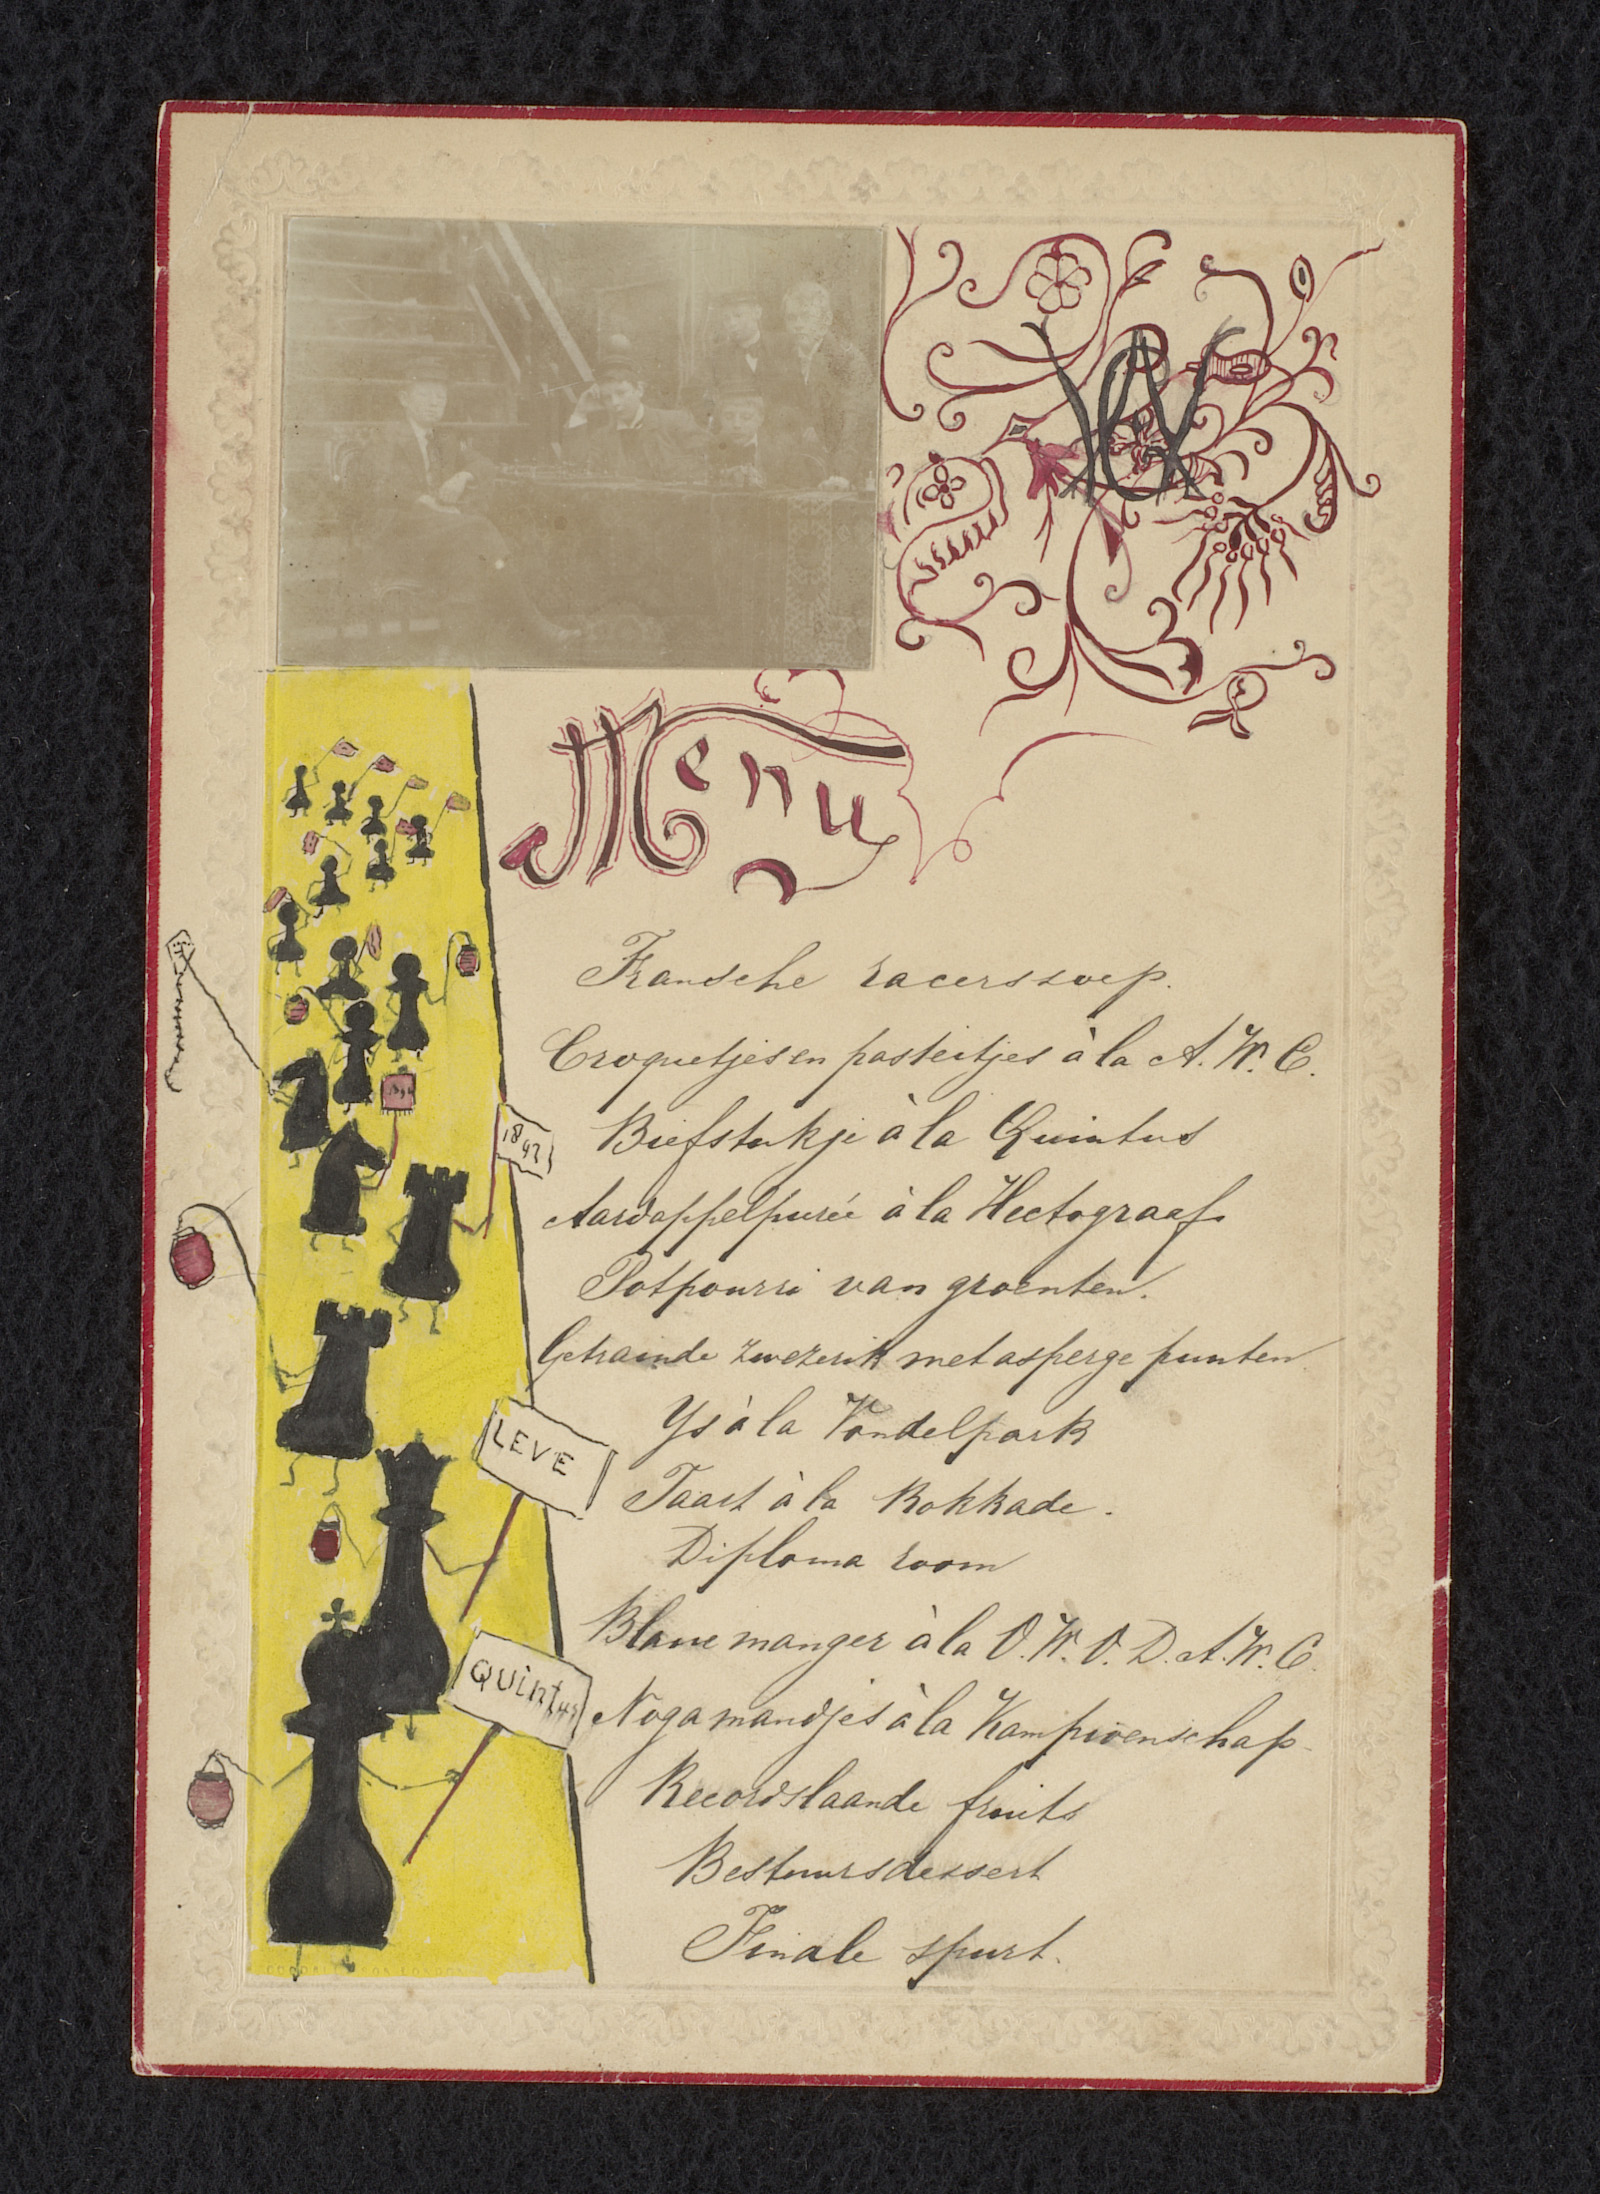 Menu
Fransche racerssoep.
Croquetjes en pasteitjes à la A. W. C.
1897
Biefstukje à la Quintus
Aardappelpurée à la Hectograaf
Potpourri van groenten.
Getrainde zwezerik met asperge punten
Ys à la Vondelpark
LEVE
Taart à la Kokkade.
Diploma room
Blanc manger à la O. W. V. D. A. W. C.
QUintus
Nogamandjes à la Kampioenschap
Recordslaande fruits
Bestuursdessert
Finale spurt.